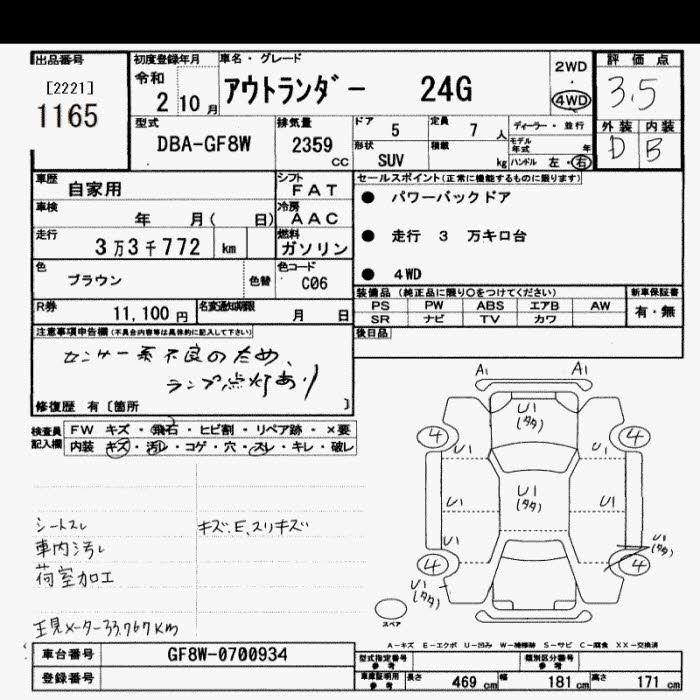 出品番号
[2221]
1165
初度登録年月
令和
2 10 月
車名・グレード
アウトランダー 24G
2WD
・
4WD
評価点
3.5
外装 内装
D B
型式
DBA-GF8W
排気量
2359
cc
ドア 5
定員 7 人
形状
SUV
積載
kg
ディーラー・並行
モデル年式 年
ハンドル 左・右
車歴
自家用
シフト
FAT
車検
年 月( 日)
冷房
AAC
走行
3万3千772 km
燃料
ガソリン
色
ブラウン
色替
色コード
C06
R券
11,100 円
名変通知期限
月 日
セールスポイント(正常に機能するものに限ります)
● パワーバックドア
● 走行 3 万キロ台
● 4WD
装備品(純正品に限り〇をつけてください)
PS PW ABS エアB AW
SR ナビ TV カワ
新車保証書
有・無
後日品
注意事項申告欄(不具合内容等は具体的に記入して下さい)
センサー系不良のため、
ランプ点灯あり
修復歴 有〔箇所 〕
検査員
記入欄
FW キズ・飛石・ヒビ割・リペア跡・×要
内装 キズ・汚レ・コゲ・穴・スレ・キレ・破レ
シートスレ
キズ、E、スリキズ
車内汚レ
荷室加工
現メーター33,767Km
A1 A1
U1
(タタ)
4 4
U1 U1
U1
U1
(タタ)
U1
U1
U1
(タタ)
4 4
U1
(タタ)
スペア
A-キズ E-エクボ U-凹み W-補修跡 S-サビ C-腐食 XX-交換済
車台番号
GF8W-0700934
登録番号
型式指定番号
参考
類別区分番号
参考
車庫証明用
参考
長さ 469 cm
幅 181 cm
高さ 171 cm